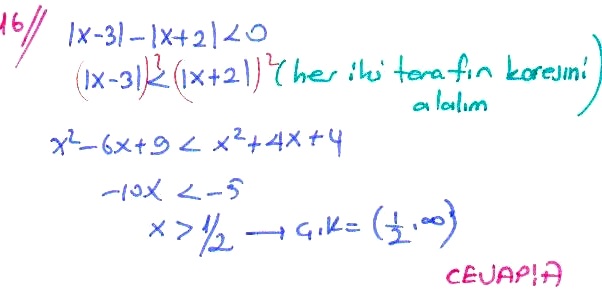 16//
|x-3|-|x+2|<0
(|x-3|)²<(|x+2|)² (her iki tarafın karesini
alalım)
x²-6x+9 < x²+4x+4
-10x < -5
x > 1/2 → Ç.K = (1/2, ∞)
CEVAP:A